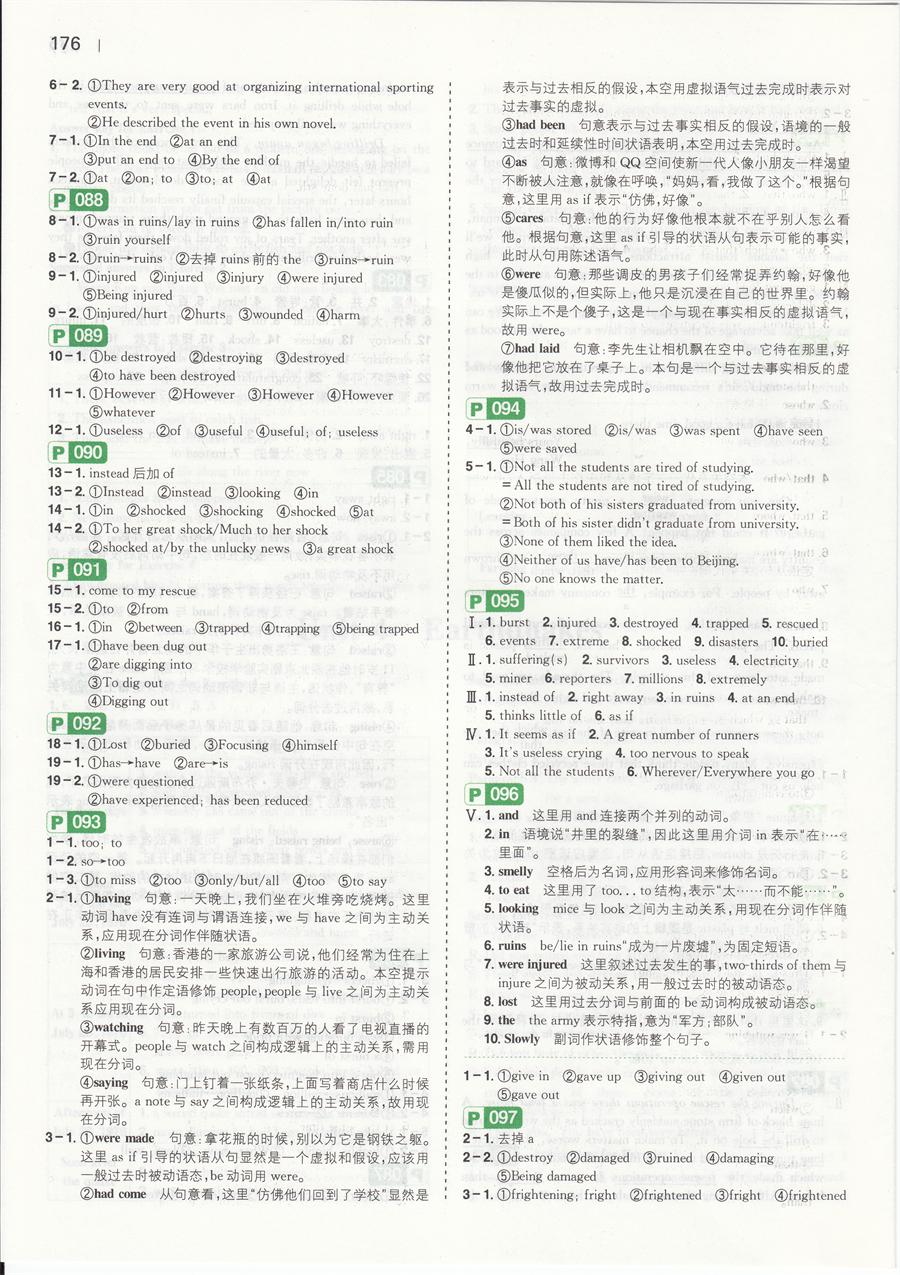 176
6-2. ①They are very good at organizing international sporting
events.
②He described the event in his own novel.
7-1. ①In the end ②at an end
③put an end to ④By the end of
7-2. ①at ②on; to ③to; at ④at
P 088
8-1. ①was in ruins/lay in ruins ②has fallen in/into ruin
③ruin yourself
8-2. ①ruin→ruins ②去掉 ruins 前的 the ③ruins→ruin
9-1. ①injured ②injured ③injury ④were injured
⑤Being injured
9-2. ①injured/hurt ②hurts ③wounded ④harm
P 089
10-1. ①be destroyed ②destroying ③destroyed
④to have been destroyed
11-1. ①However ②However ③However ④However
⑤whatever
12-1. ①useless ②of ③useful ④useful; of; useless
P 090
13-1. instead 后加 of
13-2. ①Instead ②instead ③looking ④in
14-1. ①in ②shocked ③shocking ④shocked ⑤at
14-2. ①To her great shock/Much to her shock
②shocked at/by the unlucky news ③a great shock
P 091
15-1. come to my rescue
15-2. ①to ②from
16-1. ①in ②between ③trapped ④trapping ⑤being trapped
17-1. ①have been dug out
②are digging into
③To dig out
④Digging out
P 092
18-1. ①Lost ②buried ③Focusing ④himself
19-1. ①has→have ②are→is
19-2. ①were questioned
②have experienced; has been reduced
P 093
1-1. too; to
1-2. so→too
1-3. ①to miss ②too ③only/but/all ④too ⑤to say
2-1. ①having 句意:一天晚上,我们坐在火堆旁吃烧烤。这里
动词 have 没有连词与谓语连接,we 与 have 之间为主动关
系,应用现在分词作伴随状语。
②living 句意:香港的一家旅游公司说,他们经常为住在上
海和香港的居民安排一些快速出行旅游的活动。本空提示
动词在句中作定语修饰 people,people 与 live 之间为主动关
系应用现在分词。
③watching 句意:昨天晚上有数百万的人看了电视直播的
开幕式。people 与 watch 之间构成逻辑上的主动关系,需用
现在分词。
④saying 句意:门上钉着一张纸条,上面写着商店什么时候
再开张。a note 与 say 之间构成逻辑上的主动关系,故用现
在分词。
3-1. ①were made 句意:拿花瓶的时候,别以为它是钢铁之躯。
这里 as if 引导的状语从句显然是一个虚拟和假设,应该用
一般过去时被动语态,be 动词用 were。
②had come 从句意看,这里“仿佛他们回到了学校”显然是
表示与过去相反的假设,本空用虚拟语气过去完成时表示对
过去事实的虚拟。
③had been 句意表示与过去事实相反的假设,语境的一般
过去时和延续性时间状语表明,本空用过去完成时。
④as 句意:微博和 QQ 空间使新一代人像小朋友一样渴望
不断被人注意,就像在呼唤,“妈妈,看,我做了这个。”根据句
意,这里用 as if 表示“仿佛,好像”。
⑤cares 句意:他的行为好像他根本就不在乎别人怎么看
他。根据句意,这里 as if 引导的状语从句表示可能的事实,
此时从句用陈述语气。
⑥were 句意:那些调皮的男孩子们经常捉弄约翰,好像他
是傻瓜似的,但实际上,他只是沉浸在自己的世界里。约翰
实际上不是个傻子,这是一个与现在事实相反的虚拟语气,
故用 were。
⑦had laid 句意:李先生让相机飘在空中。它待在那里,好
像他把它放在了桌子上。本句是一个与过去事实相反的虚
拟语气,故用过去完成时。
P 094
4-1. ①is/was stored ②is/was ③was spent ④have seen
⑤were saved
5-1. ①Not all the students are tired of studying.
=All the students are not tired of studying.
②Not both of his sisters graduated from university.
=Both of his sister didn't graduate from university.
③None of them liked the idea.
④Neither of us have/has been to Beijing.
⑤No one knows the matter.
P 095
Ⅰ. 1. burst 2. injured 3. destroyed 4. trapped 5. rescued
6. events 7. extreme 8. shocked 9. disasters 10. buried
Ⅱ. 1. suffering(s) 2. survivors 3. useless 4. electricity
5. miner 6. reporters 7. millions 8. extremely
Ⅲ. 1. instead of 2. right away 3. in ruins 4. at an end
5. thinks little of 6. as if
Ⅳ. 1. It seems as if 2. A great number of runners
3. It's useless crying 4. too nervous to speak
5. Not all the students 6. Wherever/Everywhere you go
P 096
Ⅴ. 1. and 这里用 and 连接两个并列的动词。
2. in 语境说“井里的裂缝”,因此这里用介词 in 表示“在……
里面”。
3. smelly 空格后为名词,应用形容词来修饰名词。
4. to eat 这里用了 too... to 结构,表示“太……而不能……”。
5. looking mice 与 look 之间为主动关系,用现在分词作伴随
状语。
6. ruins be/lie in ruins“成为一片废墟”,为固定短语。
7. were injured 这里叙述过去发生的事,two-thirds of them 与
injure 之间为被动关系,用一般过去时的被动语态。
8. lost 这里用过去分词与前面的 be 动词构成被动语态。
9. the the army 表示特指,意为“军方;部队”。
10. Slowly 副词作状语修饰整个句子。
1-1. ①give in ②gave up ③giving out ④given out
⑤gave out
P 097
2-1. 去掉 a
2-2. ①destroy ②damaged ③ruined ④damaging
⑤Being damaged
3-1. ①frightening; fright ②frightened ③fright ④frightened